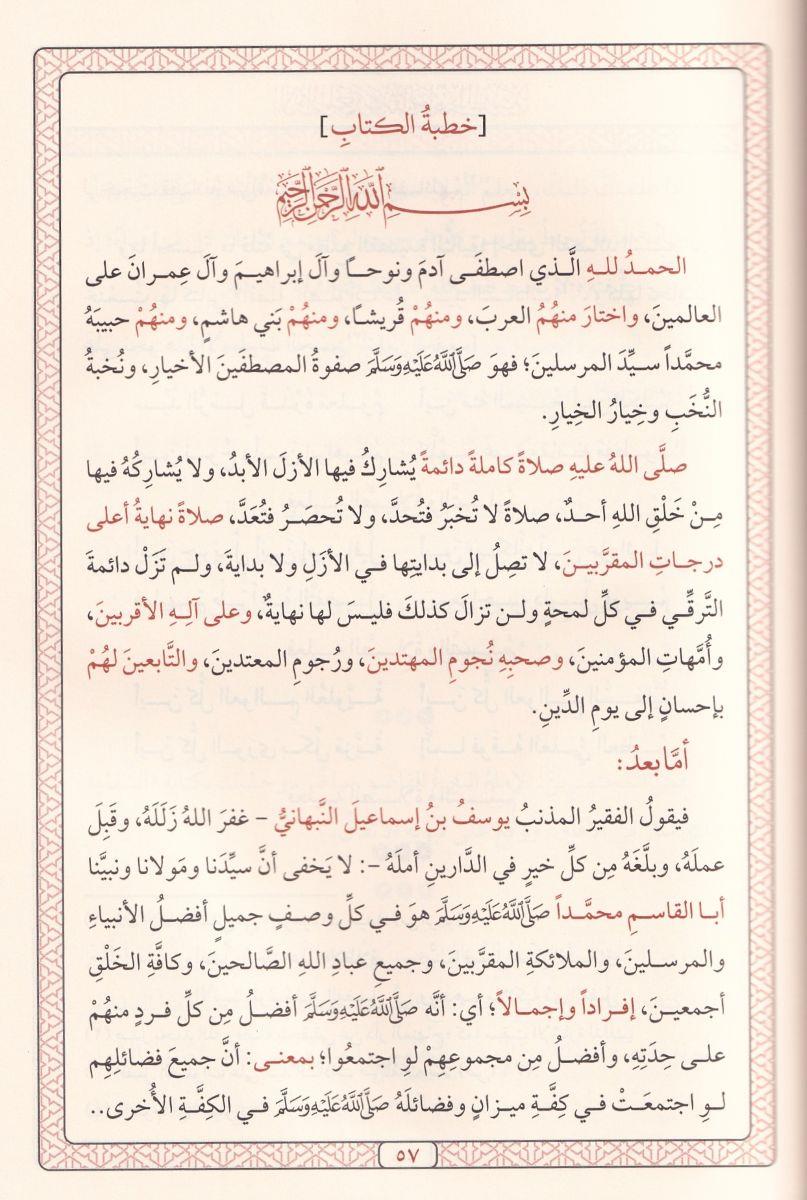 [خطبةُ الكتابِ]
بِسْمِ اللَّهِ الرَّحْمَنِ الرَّحِيمِ
الحمدُ للهِ الَّذي اصطفَى آدمَ ونوحاً وآلَ إبراهيمَ وآلَ عِمرانَ على
العالمينَ، واختارَ منهُمُ العربَ، ومنهُمْ قُريشاً، ومنهُمْ بَني هاشمٍ، ومنهُمْ حبيبَهُ
محمَّداً سيِّدَ المرسلينَ؛ فهوَ صَلَّى اللهُ عَلَيْهِ وَسَلَّمَ صفوةُ المصطفَينَ الأخيارِ، ونُخبةُ
النُّخَبِ وخِيارُ الخِيارِ.
صلَّى اللهُ عليهِ صلاةً كاملةً دائمةً يُشارِكُ فيها الأزلَ الأبدُ، ولا يُشارِكُهُ فيها
مِنْ خَلْقِ اللهِ أحدٌ، صلاةً لا تُخبَرُ فتُحدَّ، ولا تُحصَرُ فتُعَدَّ، صلاةً نهايةُ أعلى
درجاتِ المقرَّبينَ، لا تصِلُ إلى بدايتِها في الأزَلِ ولا بدايةَ، ولم تَزَلْ دائمةَ
التَّرقِّي في كلِّ لمحةٍ ولن تزالَ كذلكَ فليسَ لها نهايةٌ، وعلى آلِهِ الأقربينَ،
وأُمَّهاتِ المؤمنينَ، وصحبِهِ نُجومِ المهتدينَ، ورُجومِ المعتدينَ، والتَّابعينَ لهُمْ
بإحسانٍ إلى يومِ الدِّينِ.
أمَّا بعدُ:
فيقولُ الفقيرُ المذنبُ يوسفُ بنُ إسماعيلَ النَّبهانيُّ – غفرَ اللهُ زَلَلَهُ، وقَبِلَ
عملَهُ، وبلَّغَهُ مِن كلِّ خيرٍ في الدَّارينِ أملَهُ –: لا يَخفى أنَّ سيِّدَنا ومَولانا ونبيَّنا
أبا القاسمِ محمَّداً صَلَّى اللهُ عَلَيْهِ وَسَلَّمَ هوَ في كلِّ وصفٍ جميلٍ أفضلُ الأنبياءِ
والمرسلينَ، والملائكةِ المقرَّبينَ، وجميعِ عبادِ اللهِ الصَّالحينَ، وكافَّةِ الخَلْقِ
أجمعينَ، إفراداً وإجمالاً؛ أي: أنَّه صَلَّى اللهُ عَلَيْهِ وَسَلَّمَ أفضلُ مِن كلِّ فردٍ منهُمْ
على حِدَتِهِ، وأفضلُ مِن مجموعِهِمْ لوِ اجتمعُوا؛ بمعنى: أنَّ جميعَ فضائلِهِم
لوِ اجتمعَتْ في كِفَّةِ ميزانٍ وفضائلَهُ صَلَّى اللهُ عَلَيْهِ وَسَلَّمَ في الكِفَّةِ الأُخرى..
٥٧